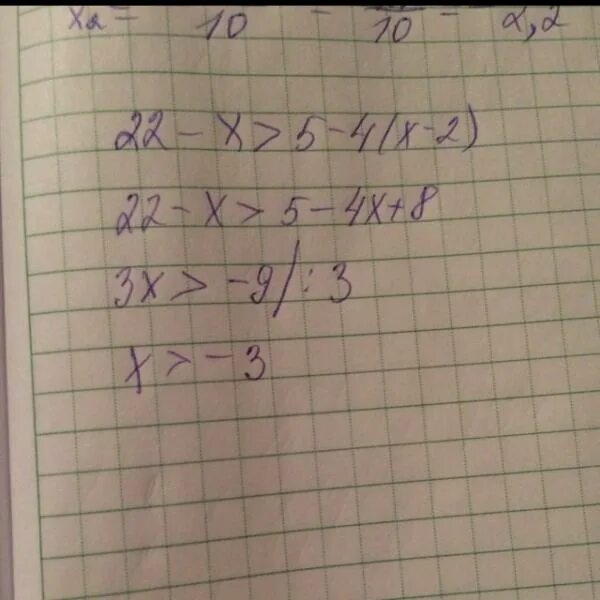 x₂ = 10 = 10 = 2,2
22 - x > 5 - 4(x - 2)
22 - x > 5 - 4x + 8
3x > -9 / : 3
x > -3